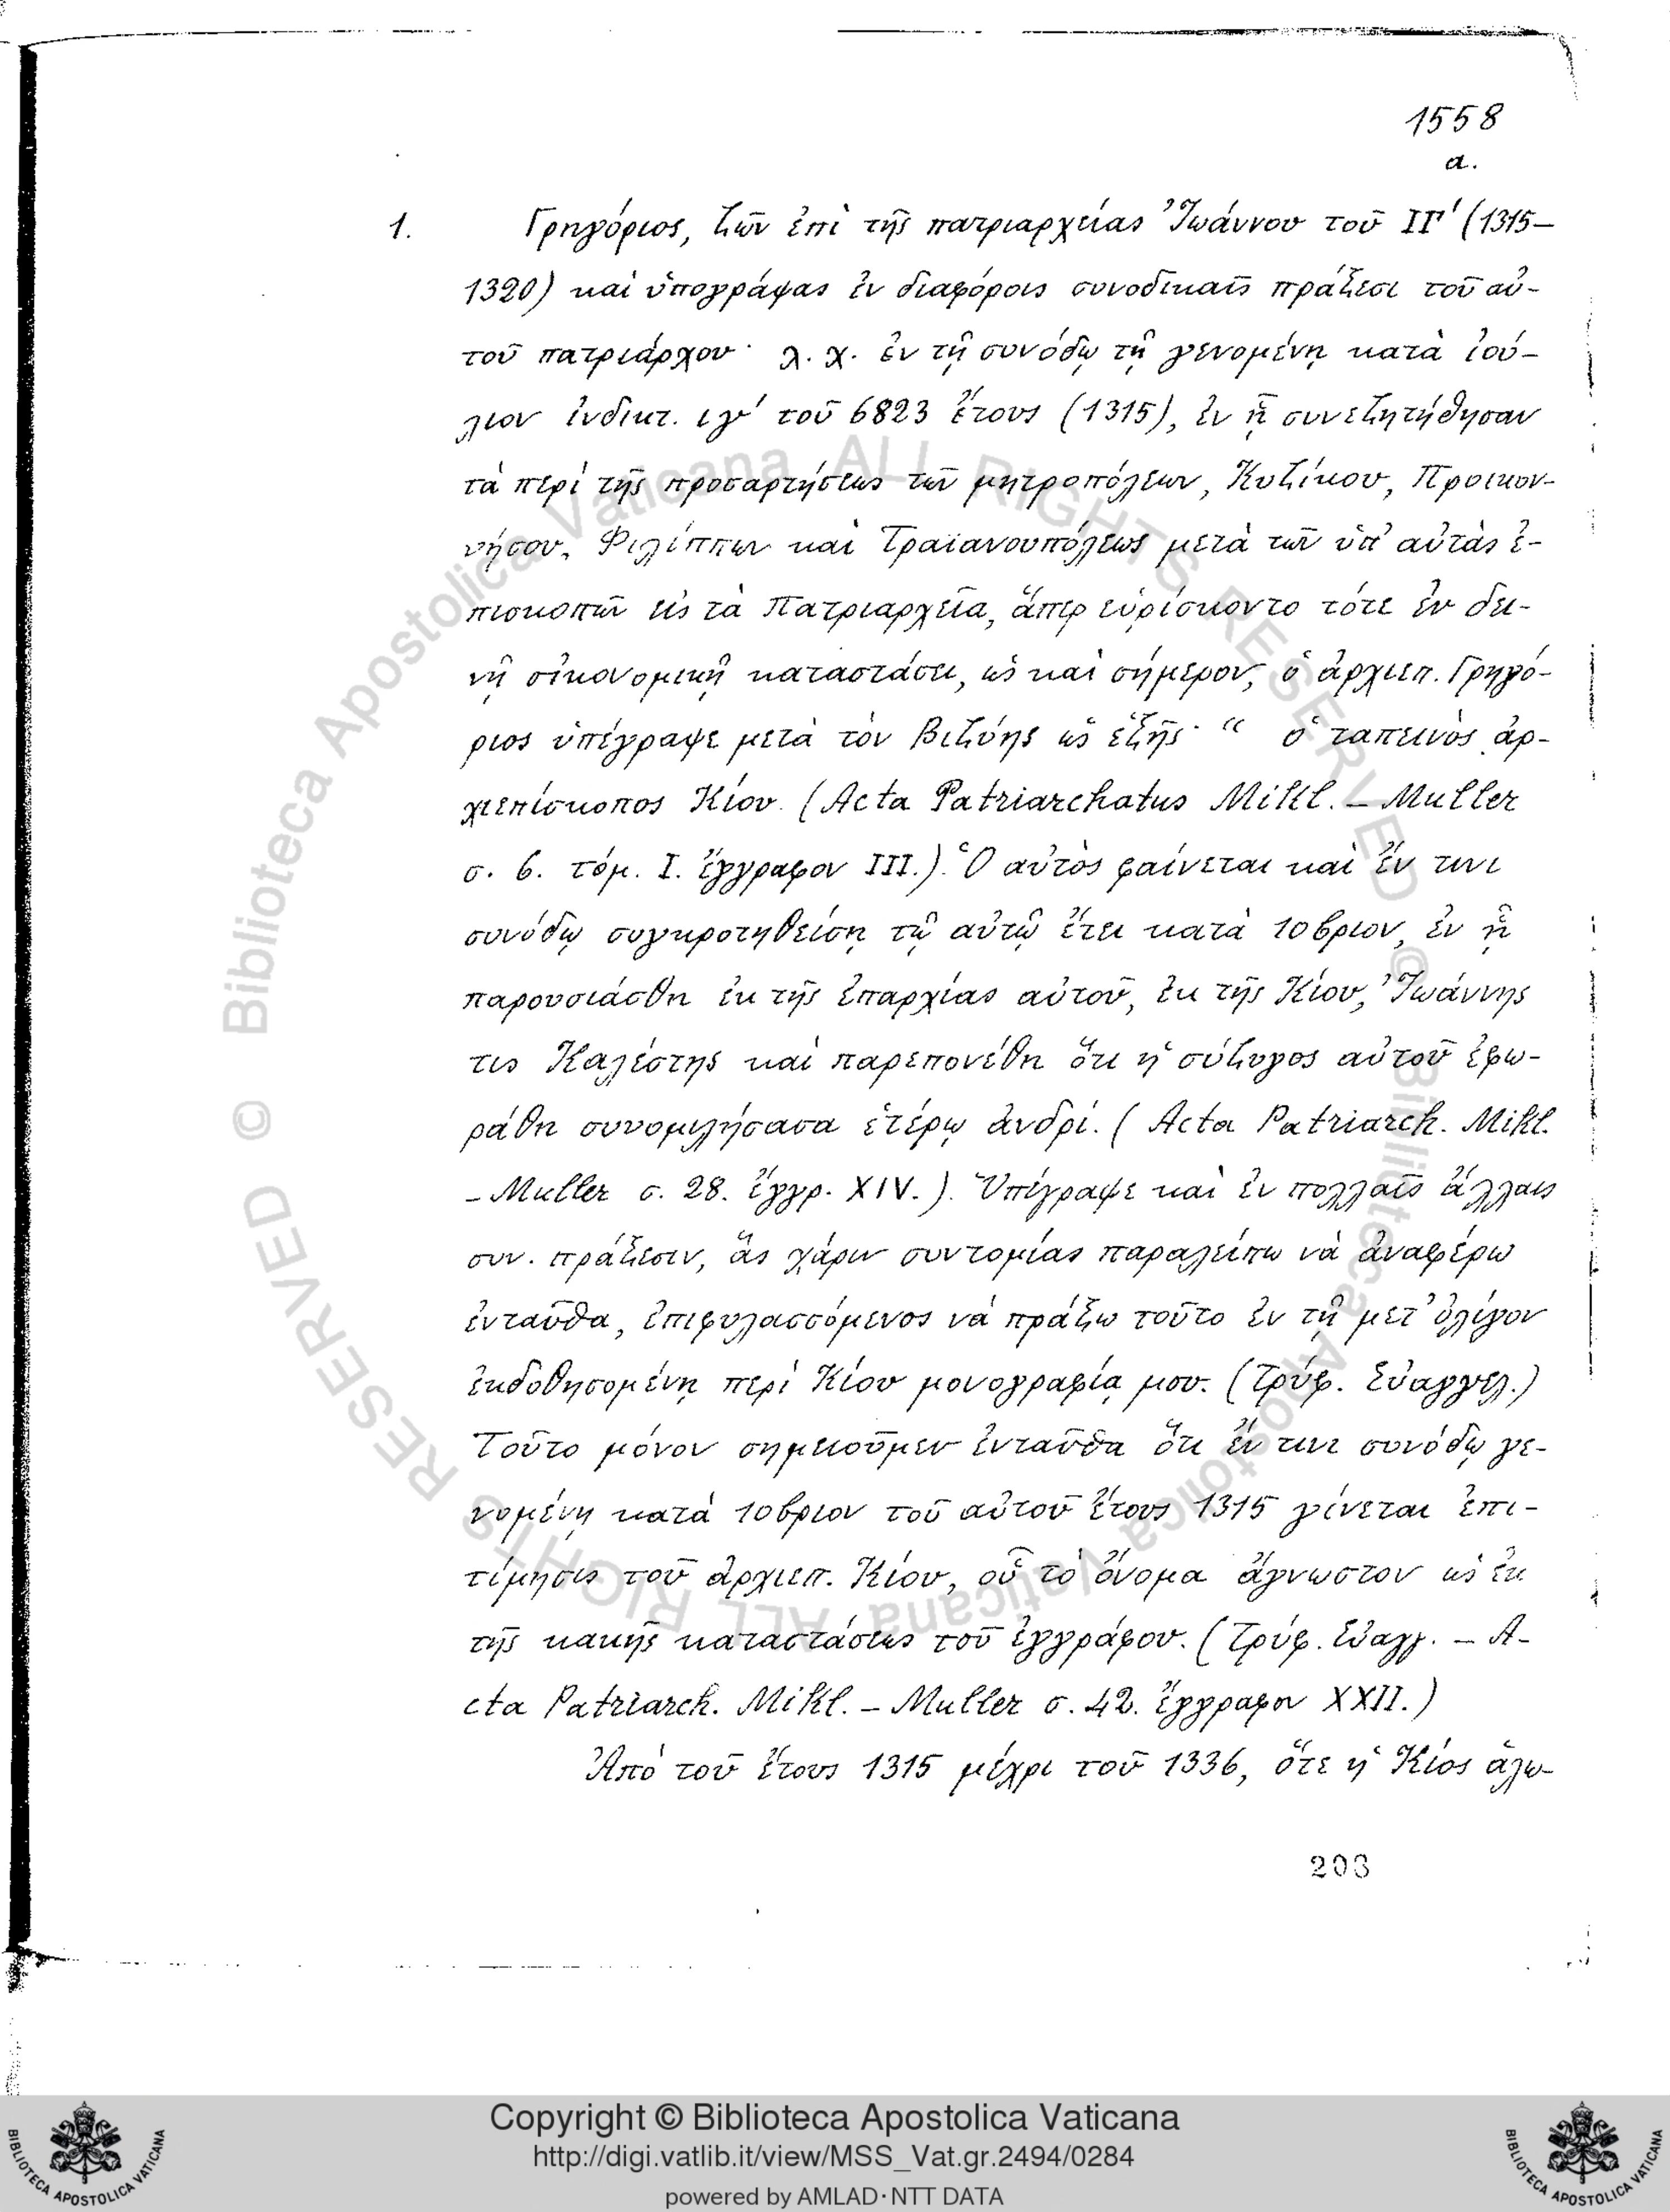 1558
α.
1. Γρηγόριος, ζῶν ἐπὶ τῆς πατριαρχείας Ἰωάννου τοῦ ΙΓ' (1315–
1320) καὶ ὑπογράψας ἐν διαφόροις συνοδικαῖς πράξεσι τοῦ αὐ-
τοῦ πατριάρχου· λ. χ. ἐν τῇ συνόδῳ τῇ γενομένῃ κατὰ ἰού-
λιον ἰνδικτ. ιγ' τοῦ 6823 ἔτους (1315), ἐν ᾗ συνεζητήθησαν
τὰ περὶ τῆς προσαρτήσεως τῶν μητροπόλεων, Κυζίκου, Προικον-
νήσου, Φιλίππων καὶ Τραϊανουπόλεως μετὰ τῶν ὑπ' αὐτὰς ἐ-
πισκοπῶν εἰς τὰ Πατριαρχεῖα, ἅπερ εὑρίσκοντο τότε ἐν δει-
νῇ οἰκονομικῇ καταστάσει, ὡς καὶ σήμερον, ὁ ἀρχιεπ. Γρηγό-
ριος ὑπέγραψε μετὰ τὸν Βιζύης ὡς ἑξῆς· “ ὁ ταπεινὸς ἀρ-
χιεπίσκοπος Κίου. (Acta Patriarchatus Mikl. – Muller
σ. 6. τόμ. I. ἔγγραφον III.). Ὁ αὐτὸς φαίνεται καὶ ἔν τινι
συνόδῳ συγκροτηθείσῃ τῷ αὐτῷ ἔτει κατὰ 10βριον, ἐν ᾗ
παρουσιάσθη ἐκ τῆς ἐπαρχίας αὐτοῦ, ἐκ τῆς Κίου, Ἰωάννης
τις Καλέστης καὶ παρεπονέθη ὅτι ἡ σύζυγος αὐτοῦ ἐφω-
ράθη συνομιλήσασα ἑτέρῳ ἀνδρί. (Acta Patriarch. Mikl.
– Muller σ. 28. ἔγγρ. XIV.). Ὑπέγραψε καὶ ἐν πολλαῖς ἄλλαις
συν. πράξεσιν, ἃς χάριν συντομίας παραλείπω νὰ ἀναφέρω
ἐνταῦθα, ἐπιφυλασσόμενος νὰ πράξω τοῦτο ἐν τῇ μετ' ὀλίγον
ἐκδοθησομένῃ περὶ Κίου μονογραφίᾳ μου. (Τρύφ. Εὐαγγελ.)
Τοῦτο μόνον σημειοῦμεν ἐνταῦθα ὅτι ἔν τινι συνόδῳ γε-
νομένῃ κατὰ 10βριον τοῦ αὐτοῦ ἔτους 1315 γίνεται ἐπι-
τίμησις τοῦ ἀρχιεπ. Κίου, οὗ τὸ ὄνομα ἄγνωστον ὡς ἐκ
τῆς κακῆς καταστάσεως τοῦ ἐγγράφου. (Τρύφ. Εὐαγγ. – A-
cta Patriarch. Mikl. – Muller σ. 42. ἔγγραφον XXII.)
Ἀπὸ τοῦ ἔτους 1315 μέχρι τοῦ 1336, ὅτε ἡ Κίος ἁλω-
203
© Biblioteca Apostolica Vaticana ALL RIGHTS RESERVED © Biblioteca Apostolica Vaticana ALL RIGHTS RESERVED
Copyright © Biblioteca Apostolica Vaticana
http://digi.vatlib.it/view/MSS_Vat.gr.2494/0284
powered by AMLAD·NTT DATA
BIBLIOTECA APOSTOLICA VATICANA
BIBLIOTECA APOSTOLICA VATICANA